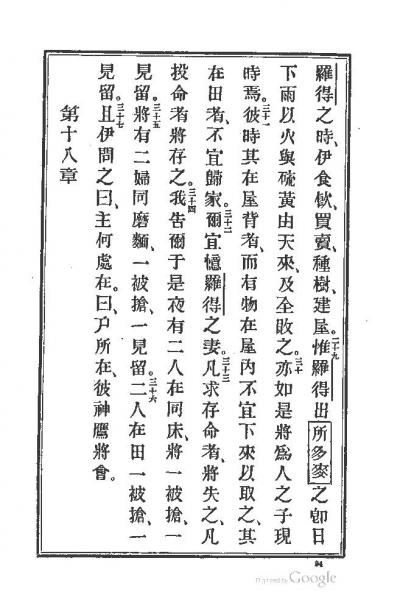 羅得之時、伊食飲、買賣、種樹、建屋。二十九惟羅得出所多麥之卽日
下雨以火與硫黃由天來、及全敗之。三十亦如是將爲人之子現
時焉。三十一彼時其在屋背者、而有物在屋內不宜下來以取之、其
在田者、不宜歸家。三十二爾宜憶羅得之妻。三十三凡求存命者、將失之、凡
投命者將存之。三十四我吿爾于是夜有二人在同床、將一被搶、一
見留。三十五將有二婦同磨麵、一被搶、一見留。三十六二人在田一被搶、一
見留。三十七且伊問之曰、主何處在。曰、尸所在、彼神鷹將會。
第十八章
Digitized by Google